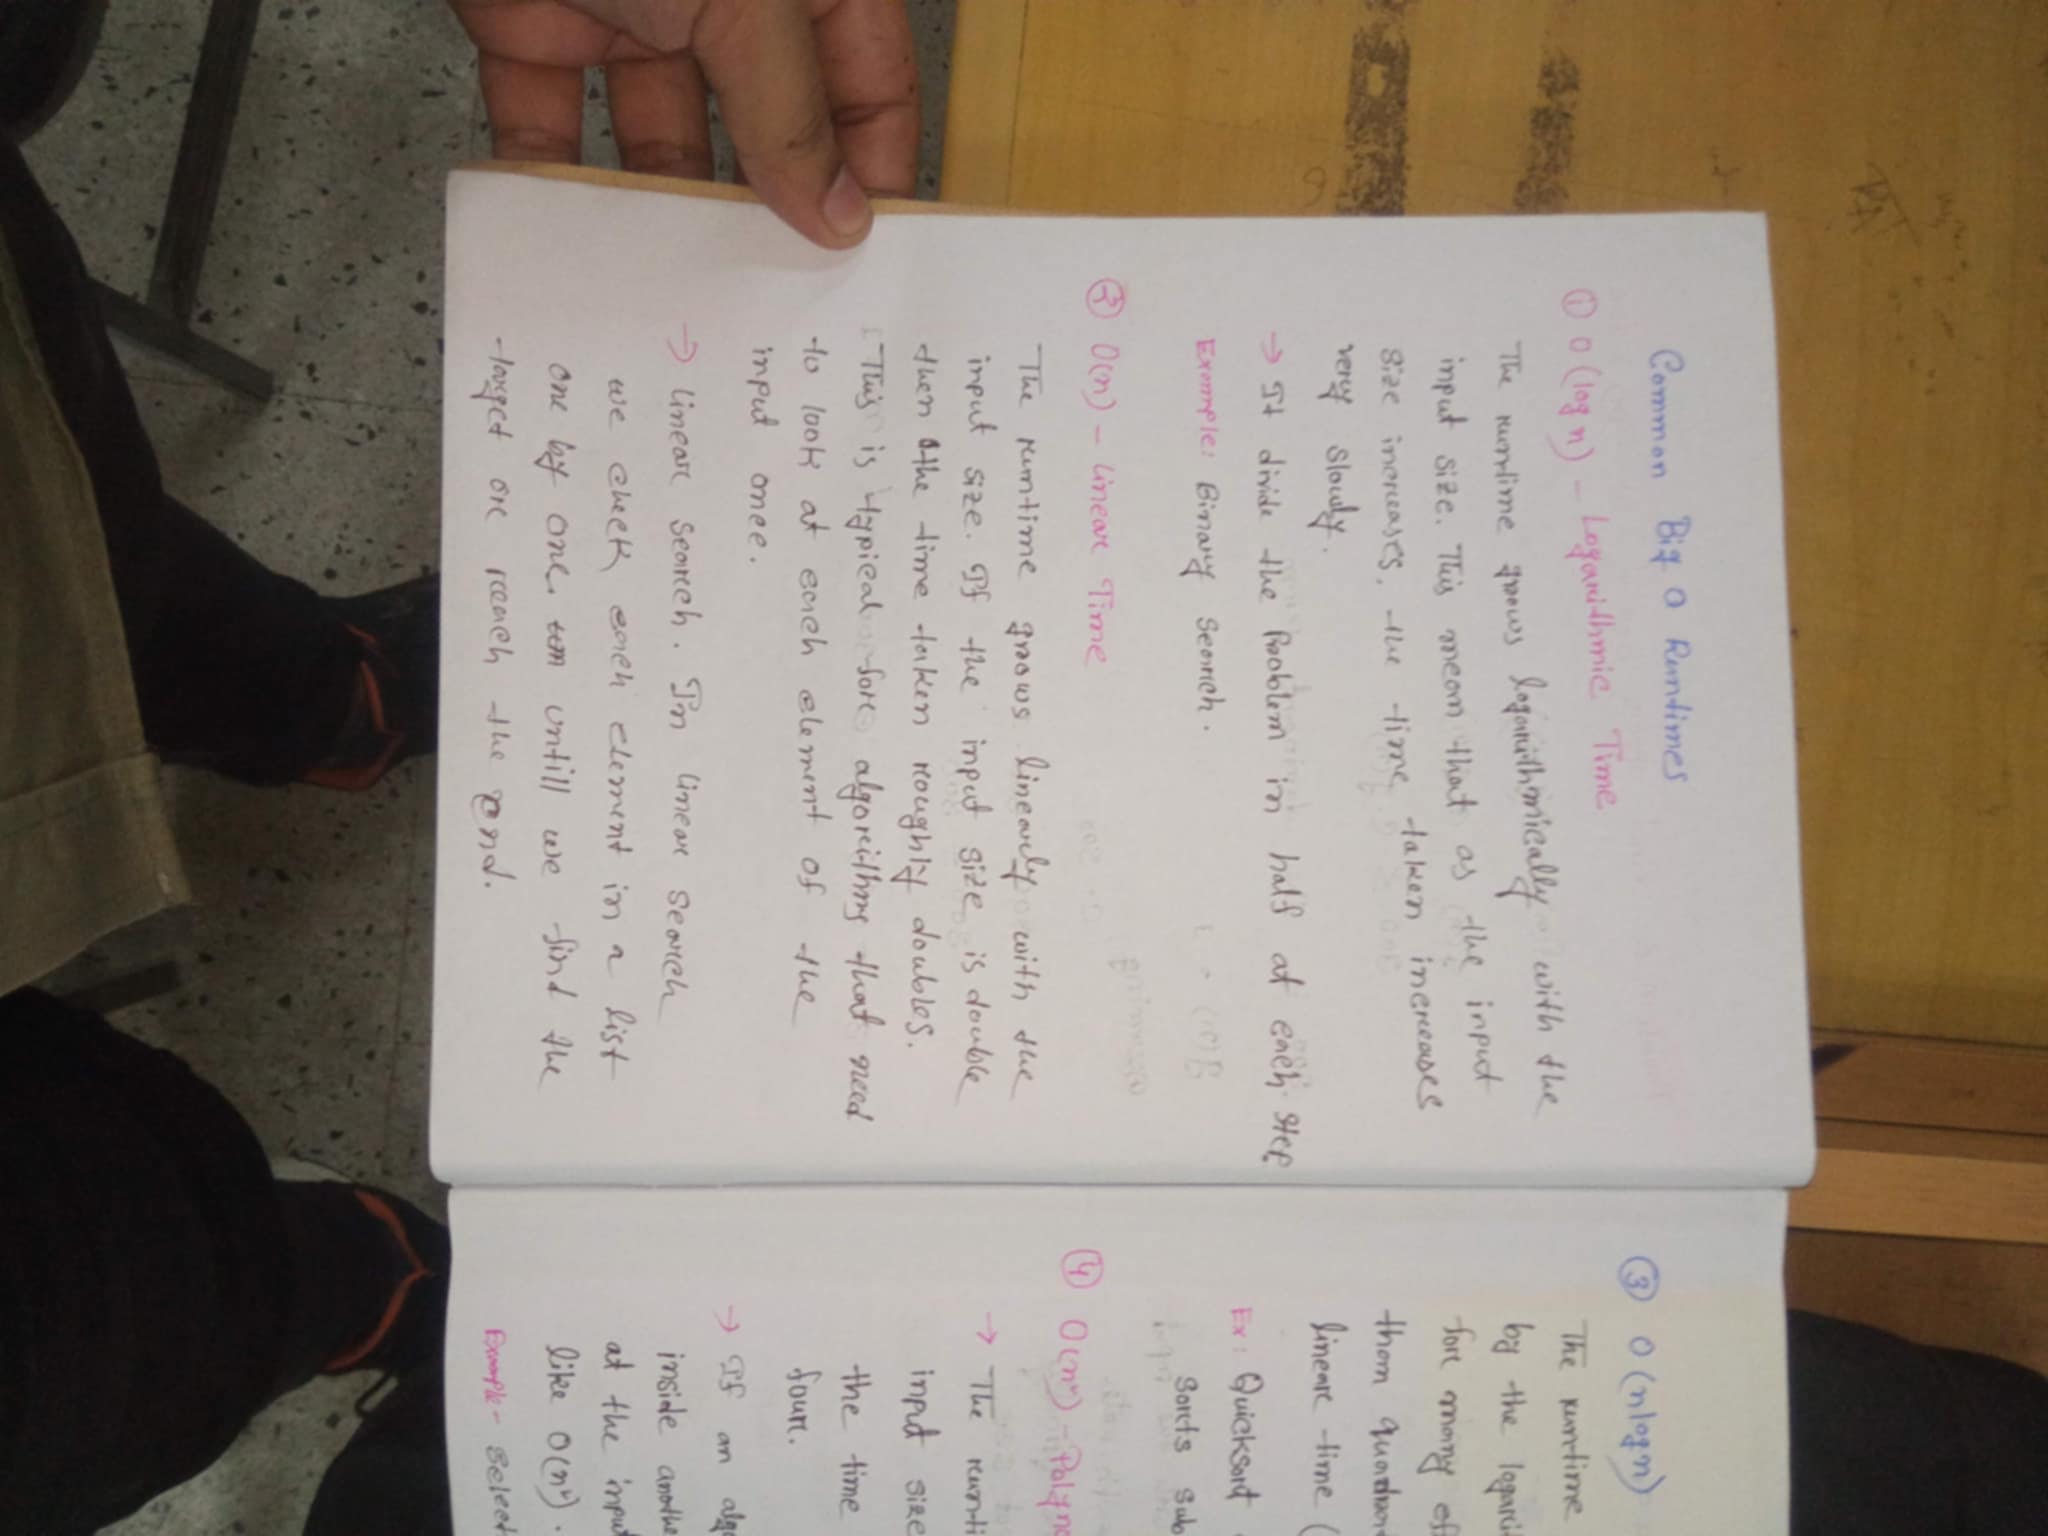 Common Big O Runtimes
① O(log n) - Logarithmic Time
The runtime grows logarithmically with the
input size. This mean that as the input
size increases, the time taken increases
very slowly.
→ It divide the Problem in half at each step
Example: Binary Search.
② O(n) - Linear Time
The runtime grows linearly with the
input size. If the input size is double
then the time taken roughly doubles.
This is typical for algorithms that need
to look at each element of the
input once.
→ linear search. In linear search
we check each element in a list
one by one. untill we find the
target or reach the end.
③ O(nlogn)
The runtime
by the logari
for many eff
than quadrat
linear time (
Ex: Quicksort
Sorts sub
④ O(n²) - Polyno
→ The runti
input size
the time
four.
→ If an algo
inside anothe
at the input
like O(n²).
Example - Select